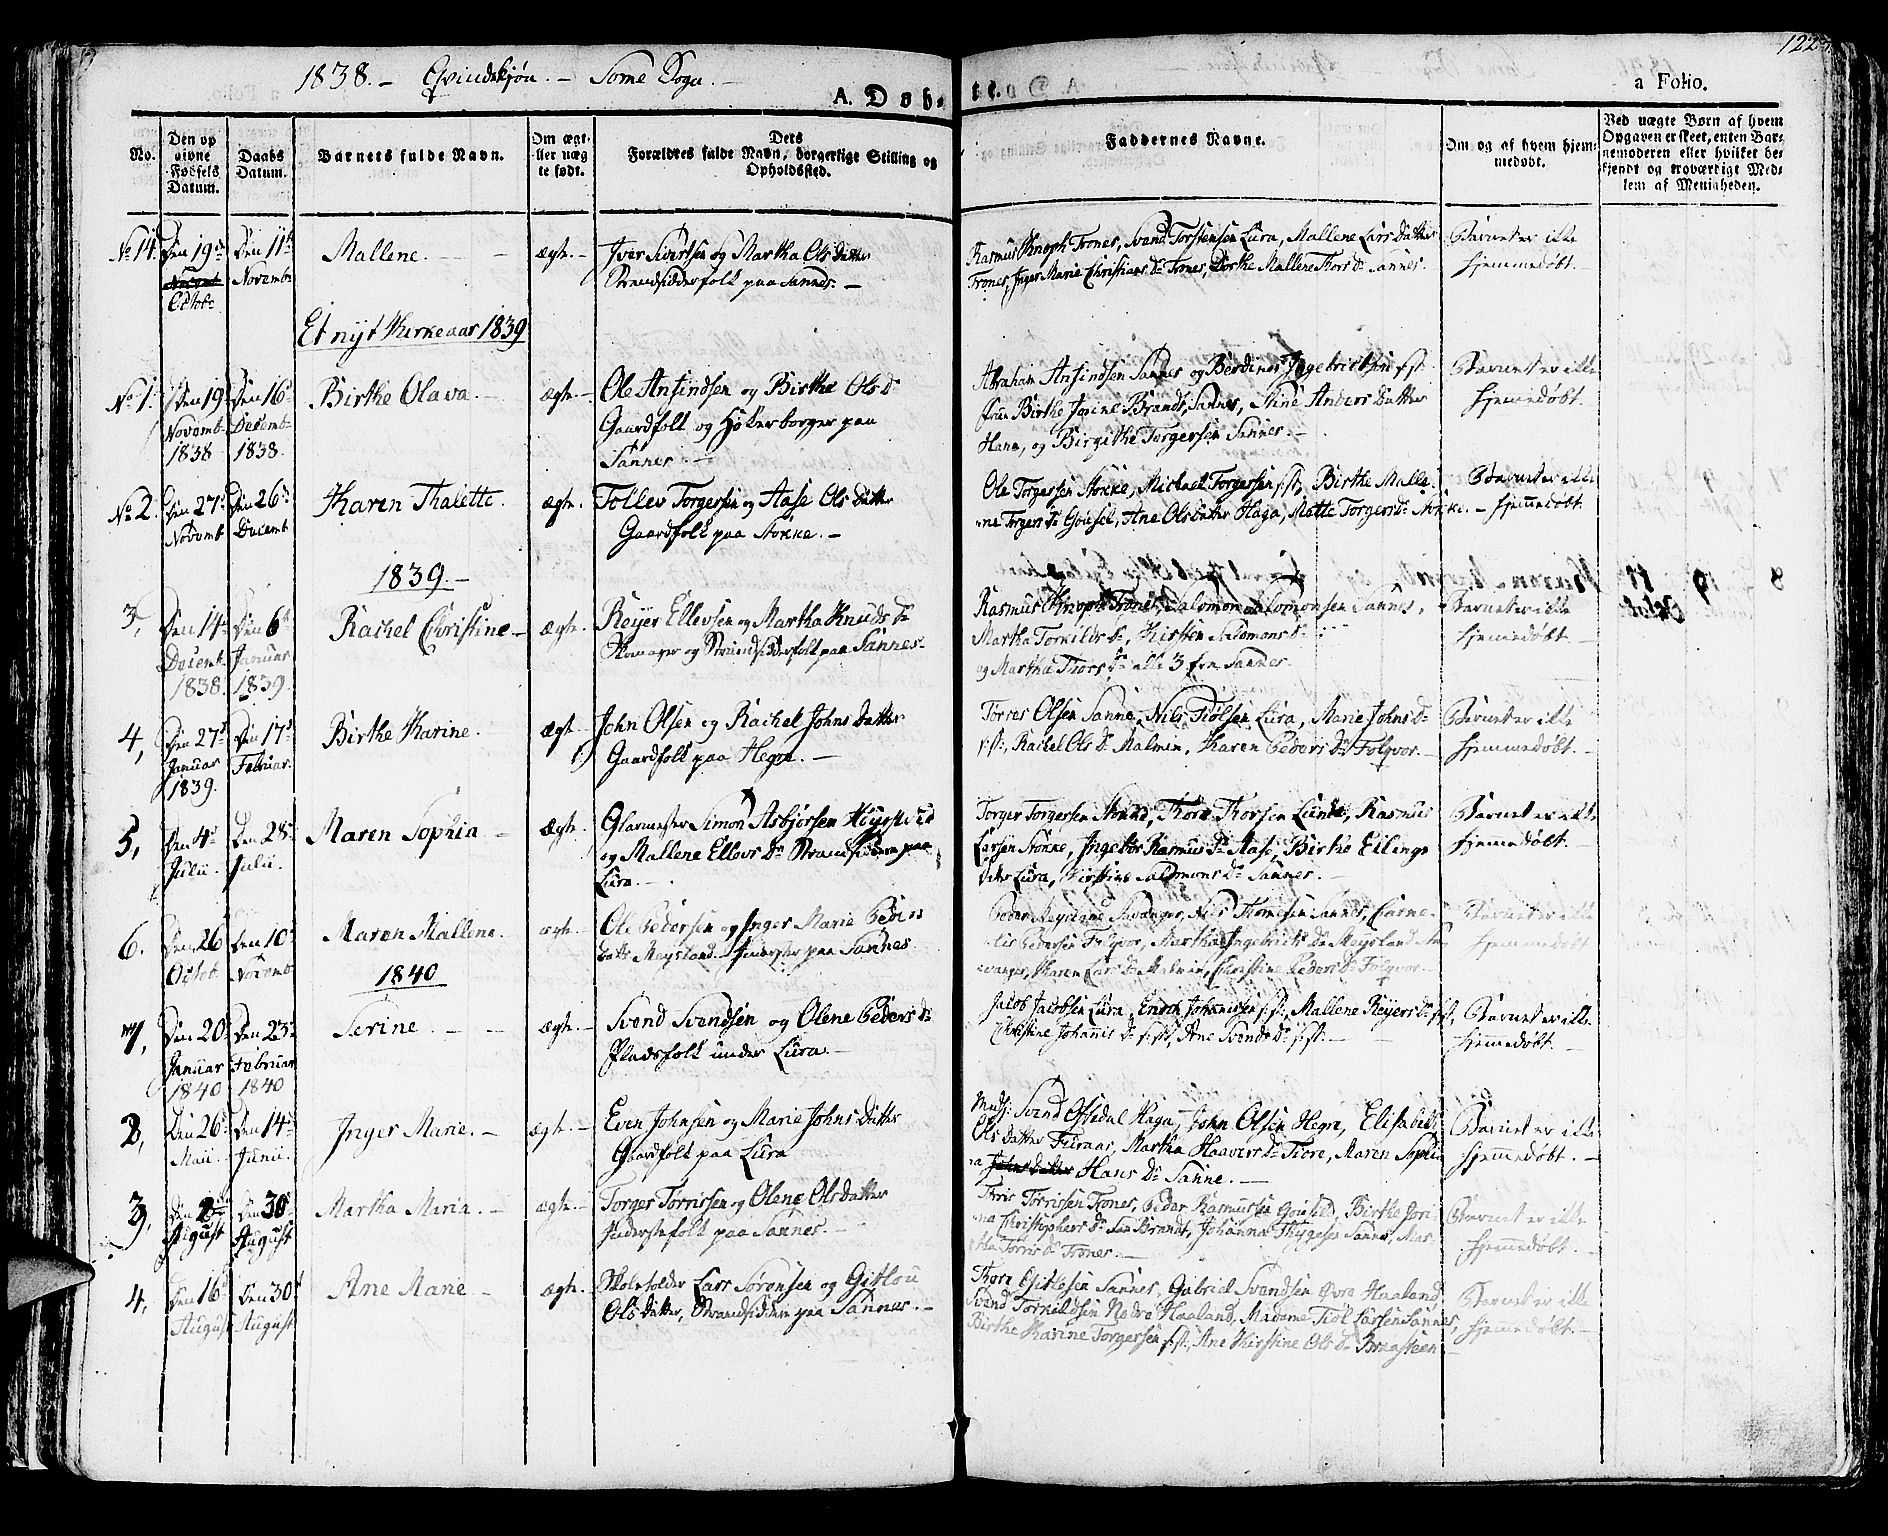 1838. - Qvindekjøn. - Some Sogn.
122
A. Døb-
te.
a Folio.
No.
Den op
givne
Fødsels
Datum.
Daabs
Datum.
Barnets fulde Navn.
Om ægt-
eller uæg
te født.
Dets
Forældres fulde Navn, borgerlige Stilling og
Opholdssted.
Faddernes Navne.
Om og af hvem hjem-
medøbt.
Ved uægte Børn af hvem
Opgaven er skeet, enten Bar-
nemoderen eller hvilket be-
kjendt og troværdigt Med-
lem af Menigheden.
No 14.
Den 19de
Octobr
Den 11te
Novembr
Mallene. -
ægte. -
Iver Sivertsen og Martha Olsdatter
Strandsidderfolk paa Sannes. -
Rasmus Knoph Trones, Svend Torstensen Lura, Mallene Larsdatter
Trones, Inger Marie Christians Dr Trones, Dorthe Mallene Thors Dr Sannes.
Barnet er ikke
hjemmedøbt.
Et nyt Kirkeaar 1839
No 1.
Den 19
Novemb.
1838
Den 16
Decemb.
1838.
Birthe Olava. -
ægte. -
Ole Anfindsen og Birthe Ols Dr
Gaardfolk og Høkerborger paa
Sannes -
Abraham Anfindsen Sannes og Berdines Ingebrictsen f: st:
Frue Birthe Jorine Brandt, Sannes, Stine Anders Datter
Hann, og Birgithe Torgersen Sannes. -
Barnet er ikke
hjemmedøbt.
No 2.
Den 27
Novemb
Den 26
Decemb
Karen Thalette.
ægte.
Tollev Torgersen og Aase Olsdatter
Gaardfolk paa Stokke. -
Ole Torgersen Stokke, Michael Torgersen f: st:, Birthe Malle-
ne Torgers Dr Gousel, Ane Olsdatter Haga, Mette Torgers Dr Stokke. -
Barnet er ikke
hjemmedøbt
1839. -
3,
Den 14
Decemb.
1838.
Den 6te
Januar
1839.
Rachel Christine -
ægte.
Reyer Ellevsen og Martha Knuds Dr
Skomager og Strandsidderfolk paa Sannes -
Rasmus Knoph Trones, Salomon Salomonsen Sannes,
Martha Torkilds Dr, Kirsten Salomons Dr
og Martha Thors Dr alle 3 fra Sannes.
Barnet er ikke
hjemmedøbt -
4,
Den 27
Januar
1839.
Den 17
Februar
Birthe Karine.
ægte
John Olsen og Rachel Johnsdatter
Gaardfolk paa Hegre. -
Torres Olsen Sanne, Nils Tiølsen Lura, Marie Johns Dr
f: st:, Rachel Ols Dr Malmin, Karen Peders Dr Folqvor. -
Barnet er ikke
hjemmedøbt. -
5,
Den 4
Julii.
Den 28
Julii.
Maren Sophia -
ægte.
Glarmester Simon Asbjørsen
og Mallene Ellevs Dr Strandsiddere paa
Lura. -
Torger Torgersen Stokke, Thore Thorsen Lunde, Rasmus
Larsen Stokke, Ingebor Rasmus Dr Aase, Birthe Eilings
datter Lura, Kirstine Salomons Dr Sannes. -
Barnet er ikke
hjemedøbt. -
6.
Den 26
Octob
Den 10
Novemb
Maren Mallene.
ægte.
Ole Pedersen og Inger Marie Peders
datter Røysland. Inderster paa Sannes
Peder Stavanger, Nils Thomesen Sannes, Corne-
lis Pedersen Folqvor, Martha Ingebricts Dr Røysland Sta-
vanger, Karen Lars Dr Malmin, Christine Peders Dr Folqvor.
Barnet er ikke
hjemmedøbt
1840
7,
Den 20
Januar
1840
Den 23
Februar
1840
Serine. - -
ægte. -
Svend Svendsen og Olene Peders Dr
Pladsfolk under Lura. -
Jacob Jacobsen Lura, Enok Johannesen f: st:, Mallene Reyers Dr f: st:,
Christine Johannis Dr f: st:, Ane Svends Dr f: st: -
Barnet er ikke
hjemedøbt. -
2,
Den 26
Maii.
Den 14
Junii.
Inger Marie. -
ægte. -
Even Johnsen og Marie Johnsdatter
Gaardfolk paa Lura
Svend Ofsedal Haga, John Olsen Hegre, Elisabeth
Olsdatter Furaas, Martha Haavers Dr Tiore, Maren Sophi-
a Hans Dr Sanne. -
Barnet er ikke
hjemmedøbt. -
3,
Den 2
August
Den 30
August
Martha Maria. -
ægte. -
Torger Torrissen og Olene Olsdatter
Inderstefolk paa Sannes. -
Thris Torrissen Trones, Peder Rasmussen Gousel, Birthe Jori-
na Christophers Dr Brandt, Johannes Thygesen Sannes, Mar-
tha Torris Dr Trones. -
Barnet er ikke
hjemmedøbt. -
4,
Den 16
August
Den 30
August
Ane Marie -
ægte.
Skoleholder Lars Sørensen og Gitlou
Olsdatter, Strandsiddere paa Sannes. -
Thore Gitlesen Sannes, Gabriel Svendsen Øvre Haaland
Svend Torkildsen Nedre Haaland, Madame Tiøl Larsen Sannes,
Birthe Karine Torgersen f: st:, Ane Kirstine Ols Dr Braasteen
Barnet er ikke
hjemmedøbt. -